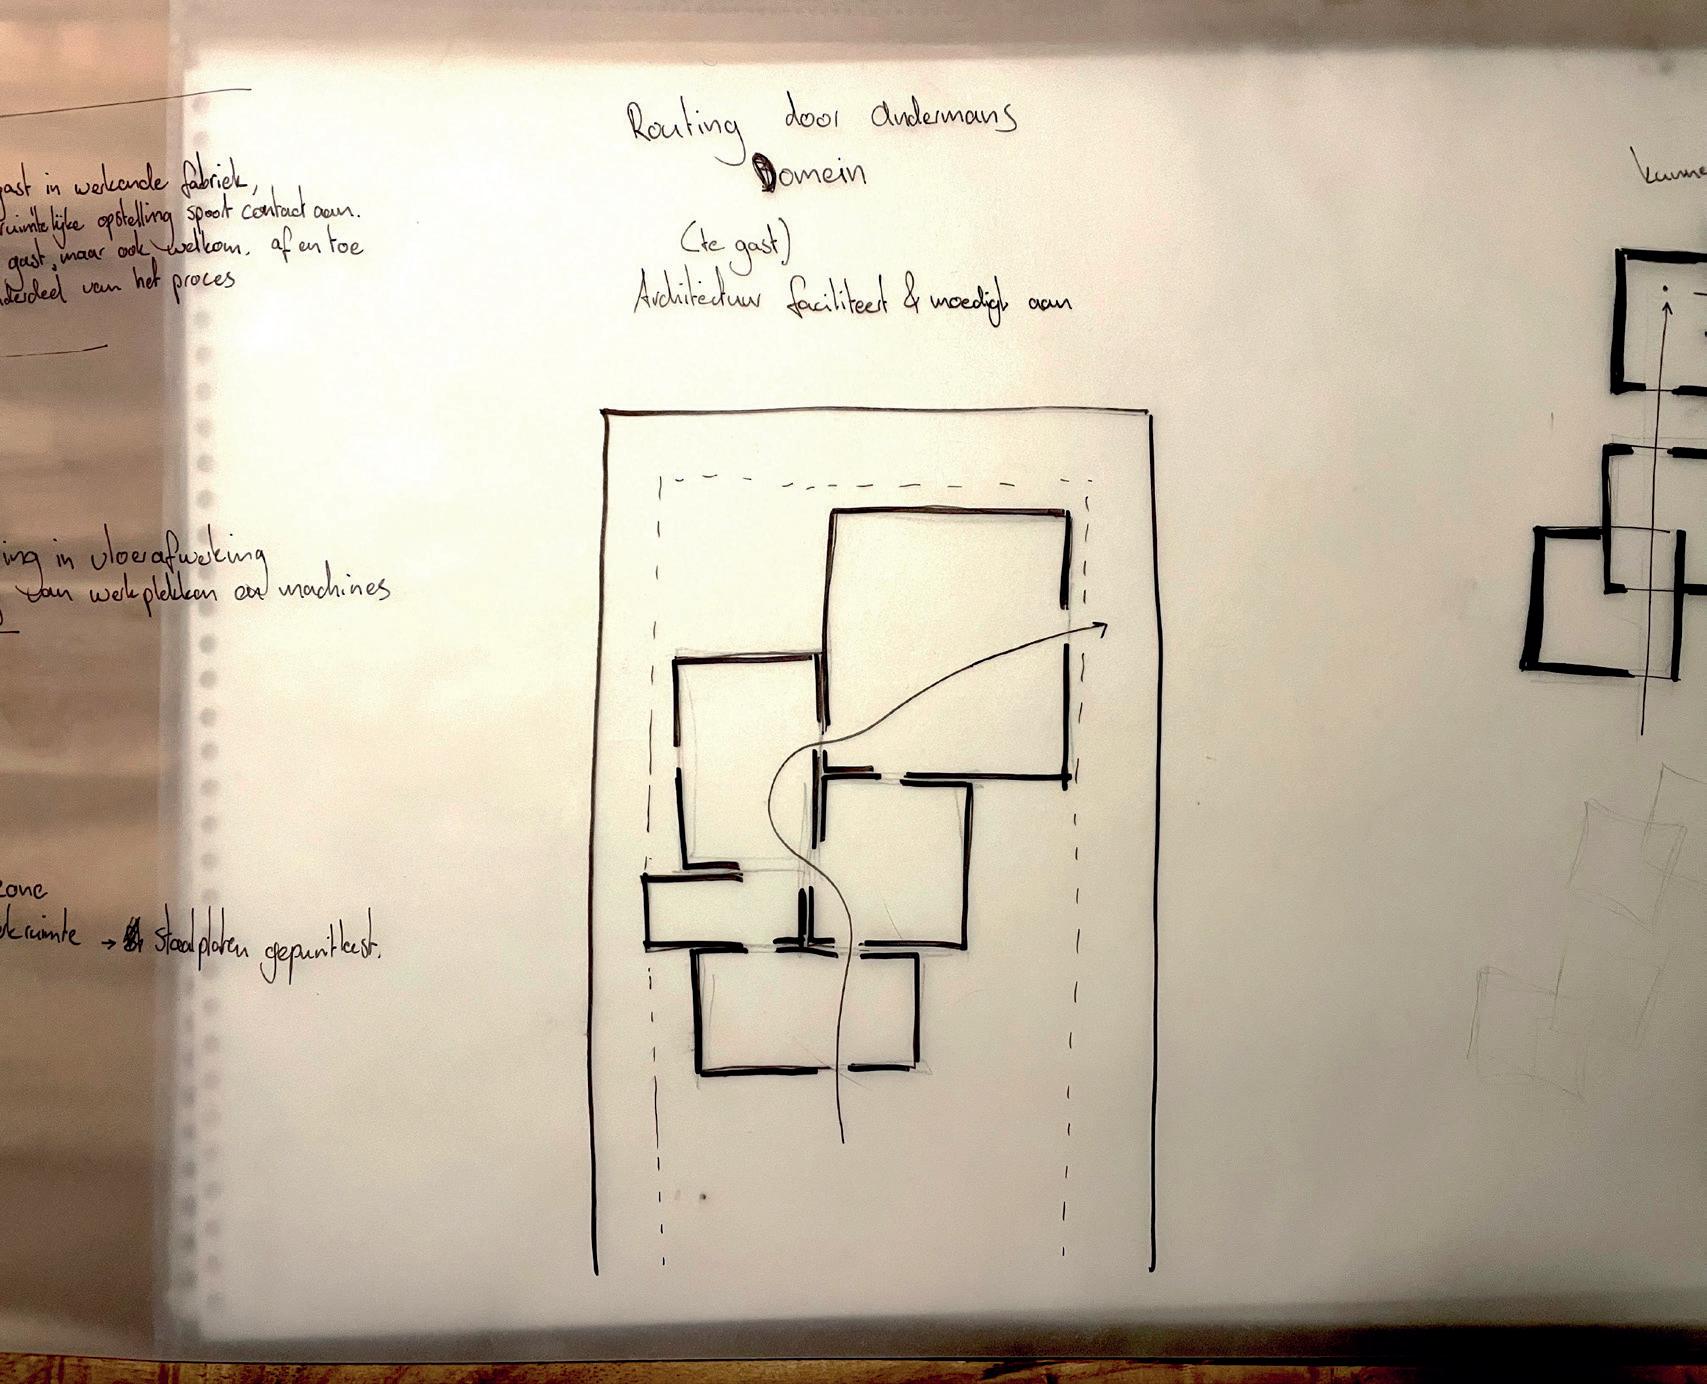 gast in werkende fabriek,
ruimtelijke opstelling spoort contact aan.
gast, maar ook welkom. af en toe
onderdeel van het proces
ing in vloerafwerking
van werkplekken en machines
zone
→ staalplaten gepuntlast.
Routing door Andermans
Domein
(te gast)
Architectuur faciliteert & moedigt aan